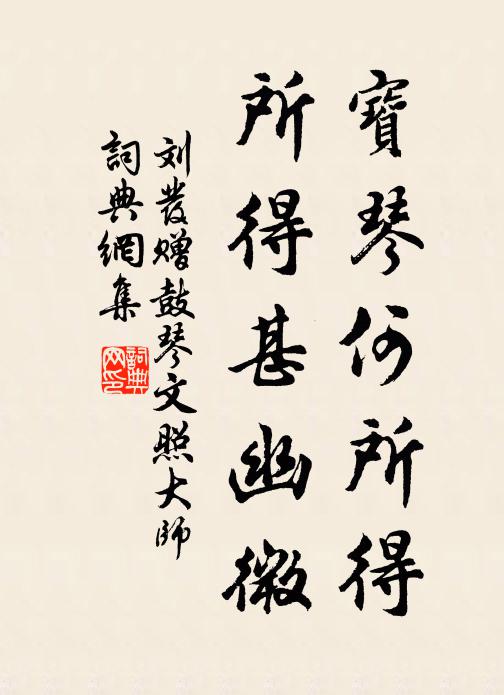 寶琴何所得
所得甚幽微
刘發贈鼓琴文照大師
詞典網集
詞典网印